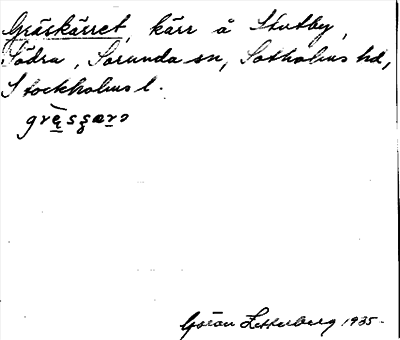 Gräskärret, kärr å Stutby,
Södra, Sorunda sn, Sotholms hd,
Stockholms l.
Göran Zetterberg 1935.